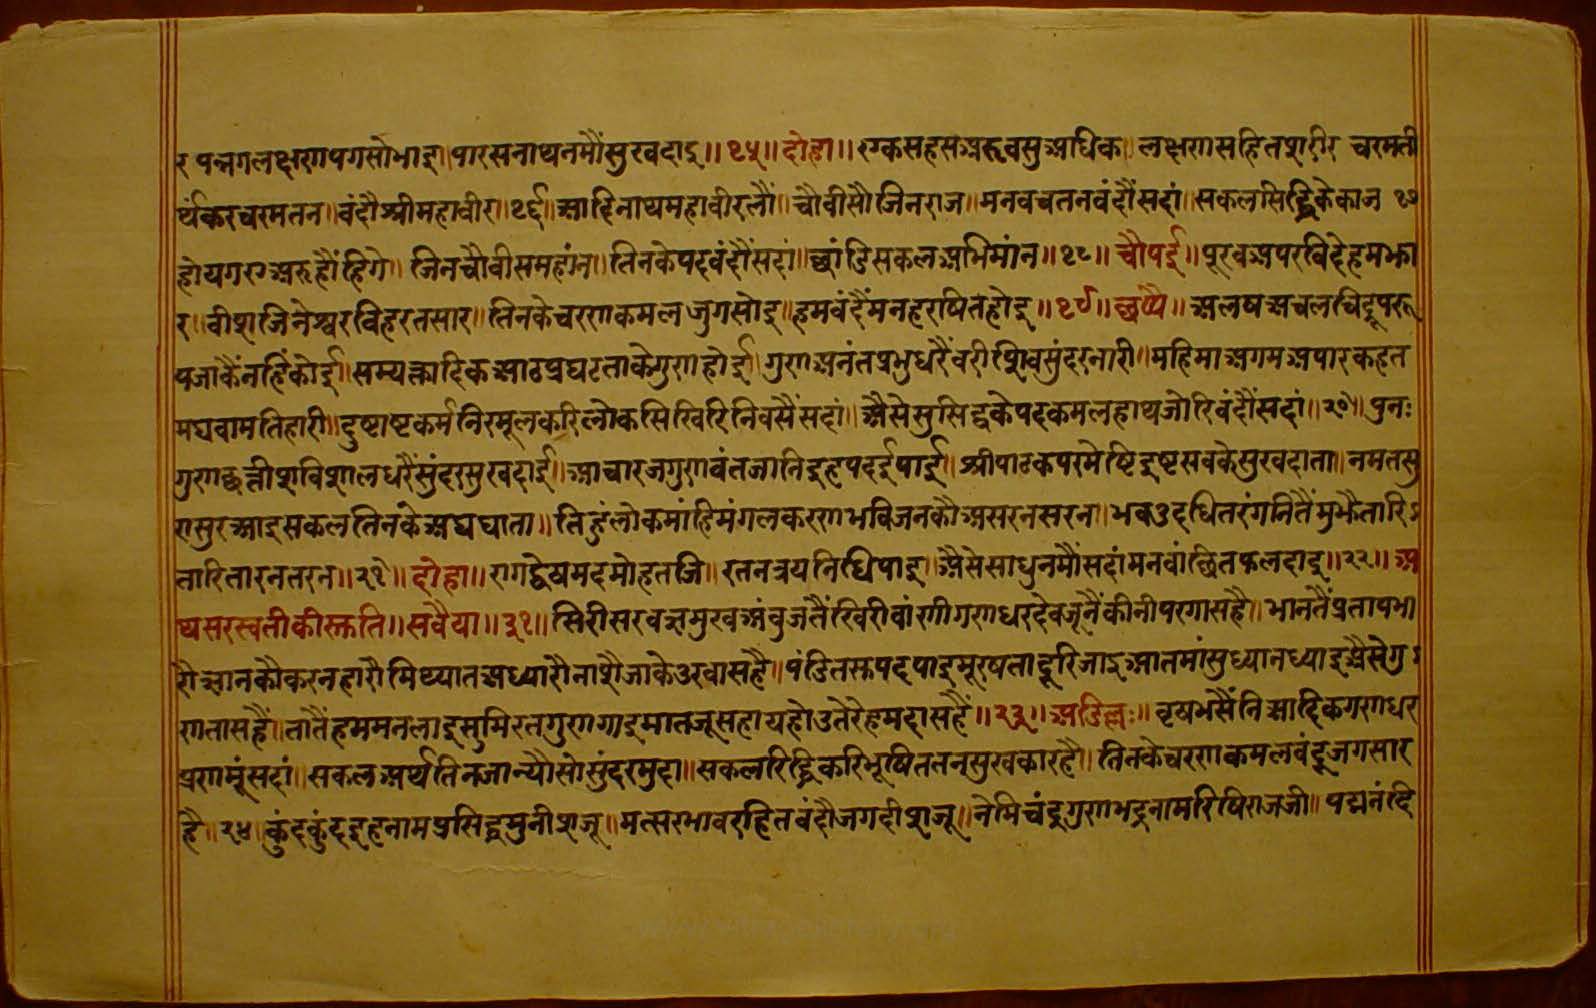 र पन्नगलक्षणपगसोभाइ।पारसनाथनमौंसुखदाइ॥१५॥दोहा॥एकसहसअरुवसुअधिक।लक्षणसहितशरीर चरमती
र्थंकरचरमतन॥वंदौंश्रीमहावीर॥१६॥आदिनाथमहावीरलौं॥चौवीसौंजिनराज॥मनवचतनवंदौंसदां॥सकलसिद्धिकेकाज १७
होयगएअरुहौंहिगे॥जिनचौवीसमहांन॥तिनकेपदवंदौंसदां॥छांडिसकलअभिमांन॥१८॥चौपई॥पूरवअपरविदेहमझा
र॥वीशजिनेश्वरविहरतसार॥तिनकेचरणकमलजुगसोइ॥हमवंदैंमनहरषितहोइ॥१९॥छप्पै॥अलषअचलचिद्रूपरू
पजाकैंनहिंकोई॥सम्यक्तादिकआठप्रघटताकेगुणहोई॥गुणअनंतप्रभुधरैंवरीशिवसुंदरनारी॥महिमाअगमअपारकहत
मघवामतिहारी॥दुष्टाष्टकर्मनिरमूलकरिलोकसिखिरिनिवसैंसदां॥अैसेसुसिद्धकेपदकमलहाथजोरिवंदौंसदां॥२०॥पुनः
गुणछत्तीशविशालधरैंसुंदरसुखदाई॥आचारजगुणवंतजानिइहपदईपाई॥श्रीपाठकपरमेष्टिइष्टसबकेसुखदाता॥नमतसु
रासुरआइसकलतिनकेअघघाता॥तिहुंलोकमांहिमंगलकरणभविजनकौअसरनसरना॥भवउदधितरंगनितैंमुझैतारि
तारितारनतरन॥२१॥दोहा॥रागद्वेषमदमोहतजि॥रतनत्रयनिधिपाइ॥अैसेसाधुनमौंसदांमनवांछितफलदाइ॥२२॥अ
थसरस्वतीकीस्तति॥सवैया॥३१॥सिरीसरवज्ञमुखअंवुजतैंखिरीवांणीगणधरदेवजूनैंकीनीपरगासहै॥भानतैंप्रतापभा
रौज्ञानकौकरनहारौमिथ्यातअध्यारौनाशैजाकेउरवासहै॥पंडितसुपदपाइमूरषताइूरिजाइआतमांसुध्यानध्याइअैसेगु
णतासहैं॥तातैंहममनलाइसुमिरतगुणगाइमातजूसहायहोउतेरेहमदासहैं॥२३॥अडिल्लः॥वृषभसैंनिआदिकगणधर
प्रणमूंसदां॥सकलअर्थतिनजान्यौसोसुंदरमुदा॥सकलरिद्धिकरिभूषिततनसुखकारहै॥तिनकेचरणकमलवंदूजगसार
है॥२४॥कुंदकुंदइहनामप्रसिद्धमुनीशजू॥मत्सरभावरहितवंदौजगदीशजू॥नेमिचंद्रगुणभद्रनामरिषिराजजी॥पद्मनंदि